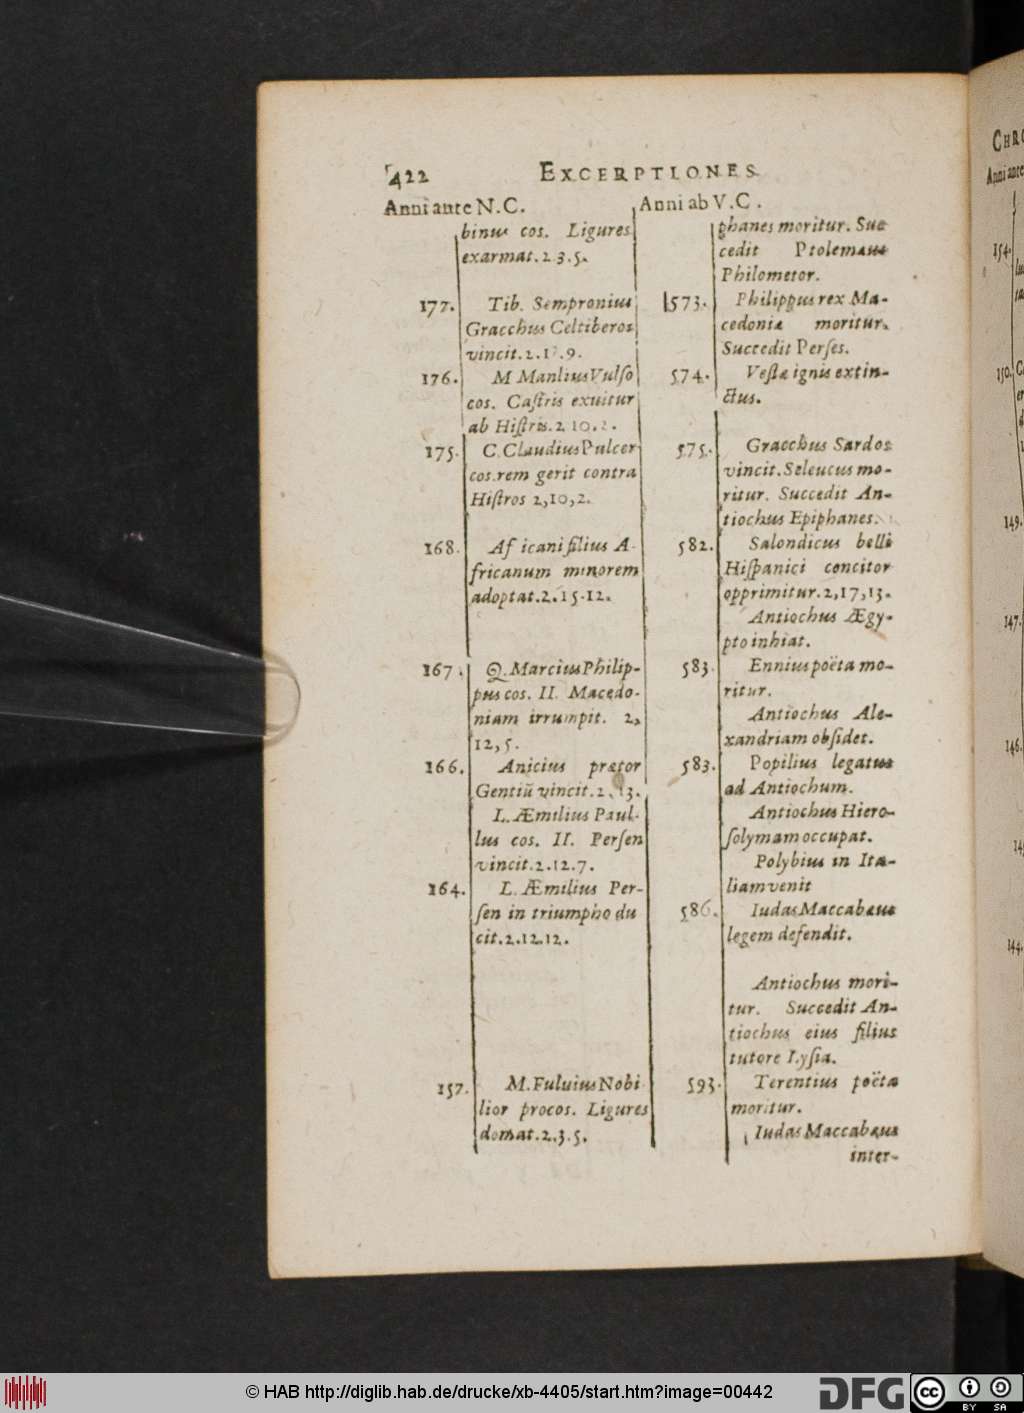 422 EXCERPTIONES
Anni ante N.C. Anni ab V.C.
binus cos. Ligures
exarmat. 2.3.5.
177. Tib. Sempronius
Gracchus Celtiberos
vincit. 2.17.9.
176. M Manlius Vulſo
cos. Caſtris exuitur
ab Hiſtris. 2 10.2.
175. C. Claudius Pulcer
cos. rem gerit contra
Hiſtros 2,10,2.
168. Af icani filius A-
fricanum minorem
adoptat. 2.15.12.
167. Q. Marcius Philip-
pus cos. II. Macedo-
niam irrumpit. 2,
12,5.
166. Anicius prætor
Gentiũ vincit. 2.13.
L. Æmilius Paul-
lus cos. II. Perſen
vincit. 2.12.7.
164. L. Æmilius Per-
ſen in triumpho du
cit. 2.12.12.
157. M. Fuluius Nobi
lior procos. Ligures
domat. 2.3.5.
phanes moritur. Suc
cedit Ptolemæus
Philometor.
573. Philippus rex Ma-
cedoniæ moritur.
Succedit Perſes.
574. Veſtæ ignis extin-
ctus.
575. Gracchus Sardos
vincit. Seleucus mo-
ritur. Succedit An-
tiochus Epiphanes.
582. Salondicus belli
Hiſpanici concitor
opprimitur. 2,17,13.
Antiochus Ægy-
pto inhiat.
583. Ennius poëta mo-
ritur.
Antiochus Ale-
xandriam obſidet.
583. Popilius legatus
ad Antiochum.
Antiochus Hiero-
ſolymam occupat.
Polybius in Ita-
liam venit
586. Iudas Maccabæus
legem defendit.
Antiochus mori-
tur. Succedit An-
tiochus eius filius
tutore Lyſia.
593. Terentius poëta
moritur.
Iudas Maccabæus
inter-
CHRO
Anni ante
154.
150.
149.
147.
146.
144.
© HAB http://diglib.hab.de/drucke/xb-4405/start.htm?image=00442
DFG
cc BY SA